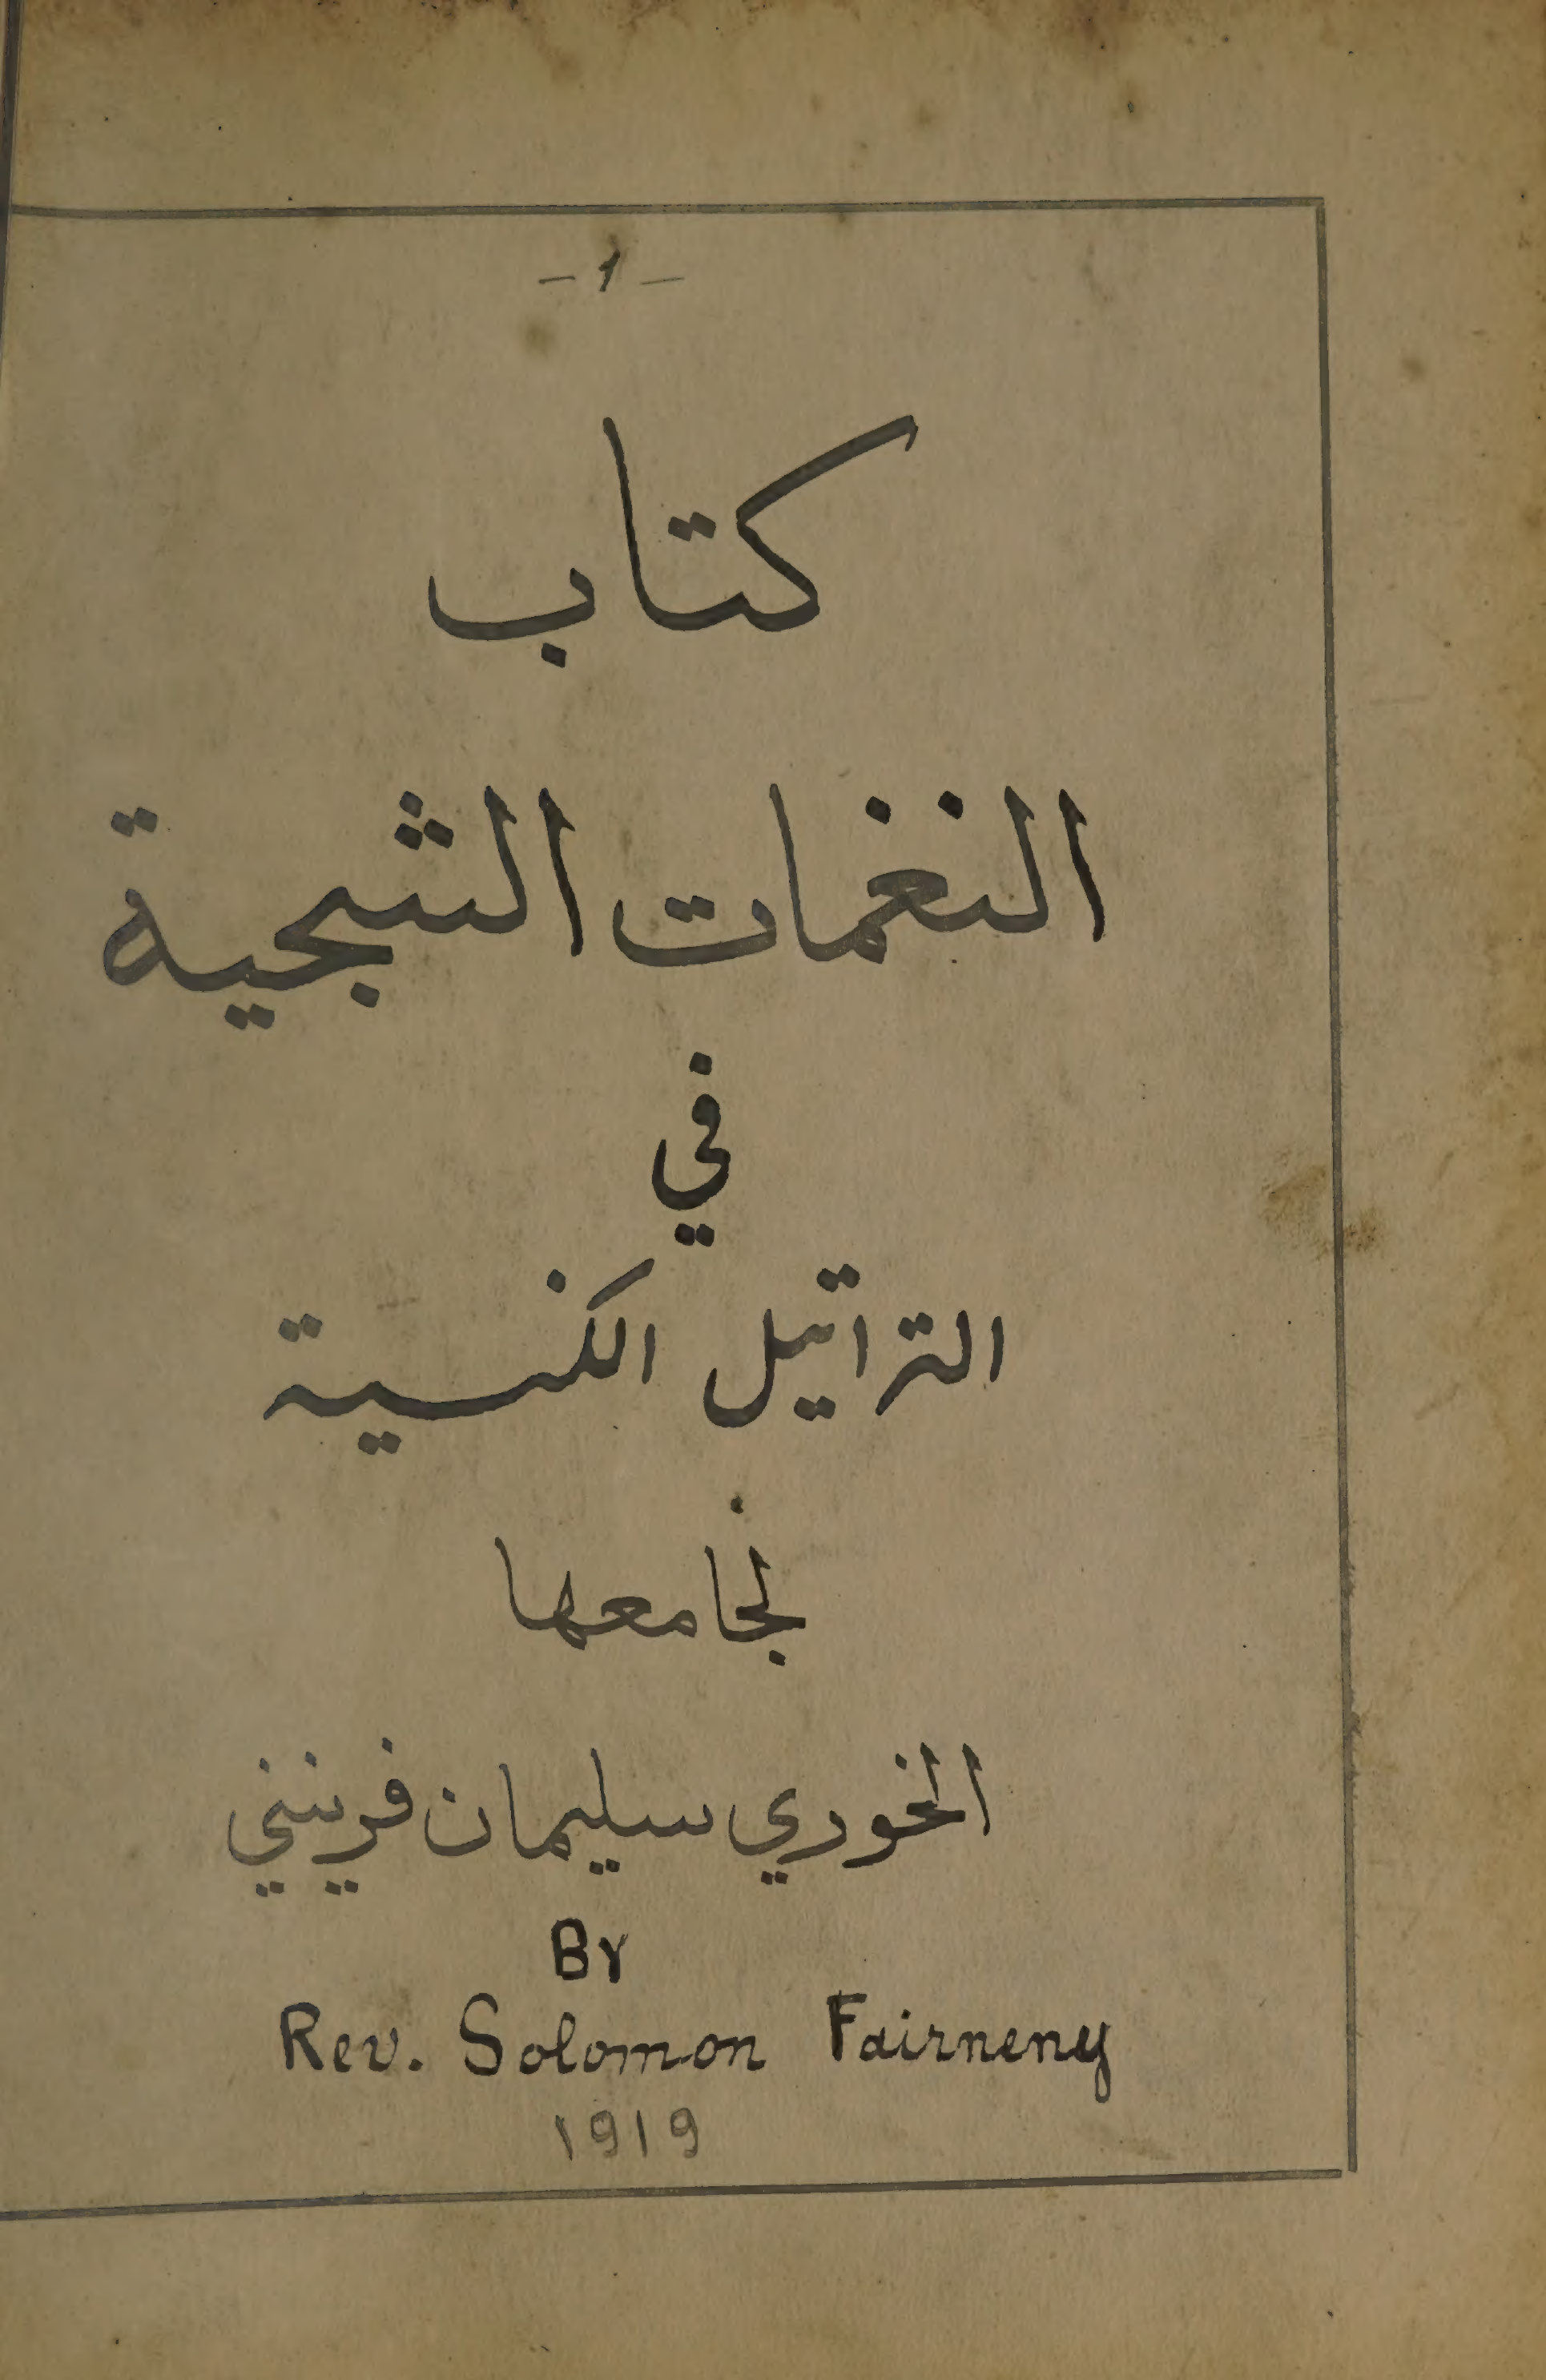 - 1 -
كتاب
النغمات الشجية
في
التراتيل الكنسية
لجامعها
الخوري سليمان فرينيني
BY
Rev. Solomon Fairneny
1919